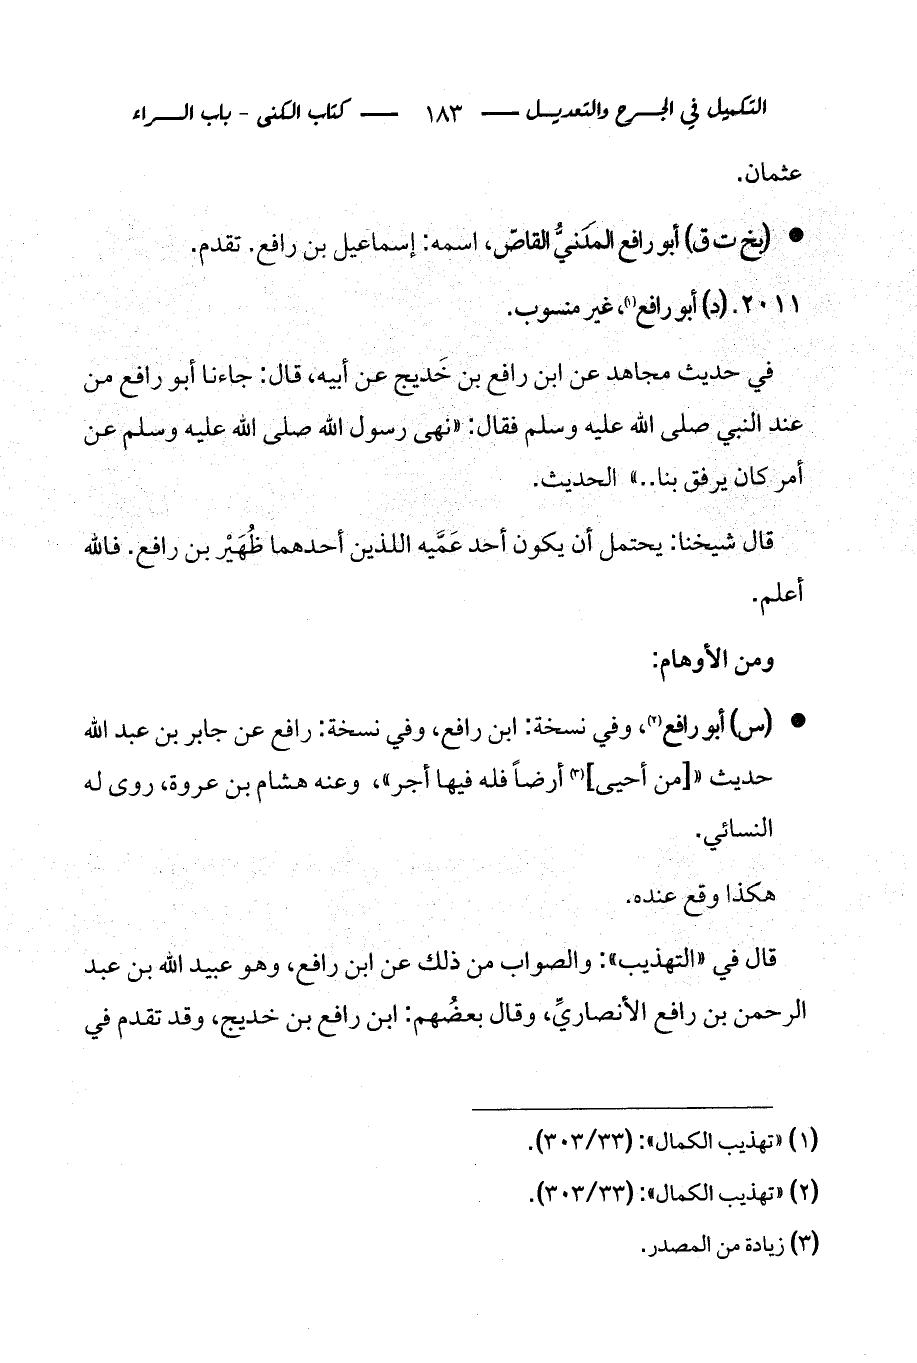 التكميل في الجرح والتعديل — ١٨٣ — كتاب الكنى - باب الراء
عثمان.
● (بخ ت ق) أبو رافع المَدَنيُّ القاصّ، اسمه: إسماعيل بن رافع. تقدم.
٢٠١١. (د) أبو رافع(١)، غير منسوب.
في حديث مجاهد عن ابن رافع بن خَديج عن أبيه، قال: جاءنا أبو رافع من
عند النبي صلى الله عليه وسلم فقال: «نهى رسول الله صلى الله عليه وسلم عن
أمر كان يرفق بنا..» الحديث.
قال شيخنا: يحتمل أن يكون أحد عَمَّيه اللذين أحدهما ظُهَيْر بن رافع. فالله
أعلم.
ومن الأوهام:
● (س) أبو رافع(٢)، وفي نسخة: ابن رافع، وفي نسخة: رافع عن جابر بن عبد الله
حديث «[من أحيى](٣) أرضاً فله فيها أجر»، وعنه هشام بن عروة، روى له
النسائي.
هكذا وقع عنده.
قال في «التهذيب»: والصواب من ذلك عن ابن رافع، وهو عبيد الله بن عبد
الرحمن بن رافع الأنصاريِّ، وقال بعضُهم: ابن رافع بن خديج، وقد تقدم في
(١) «تهذيب الكمال»: (٣٠٣/٣٣).
(٢) «تهذيب الكمال»: (٣٠٣/٣٣).
(٣) زيادة من المصدر.